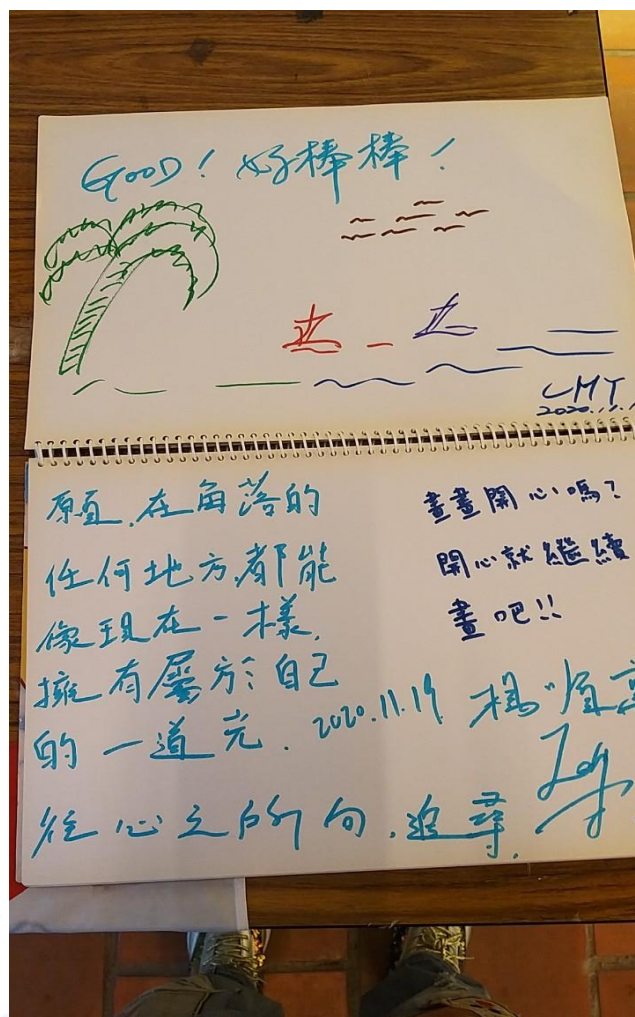 GOOD! 好棒棒!
CMY
2020.11.1
願、在角落的
任何地方,都能
像現在一樣,
擁有屬於自己
的一道光. 2020.11.19
往心之所向,追尋.
畫畫開心嗎?
開心就繼續
畫吧!!